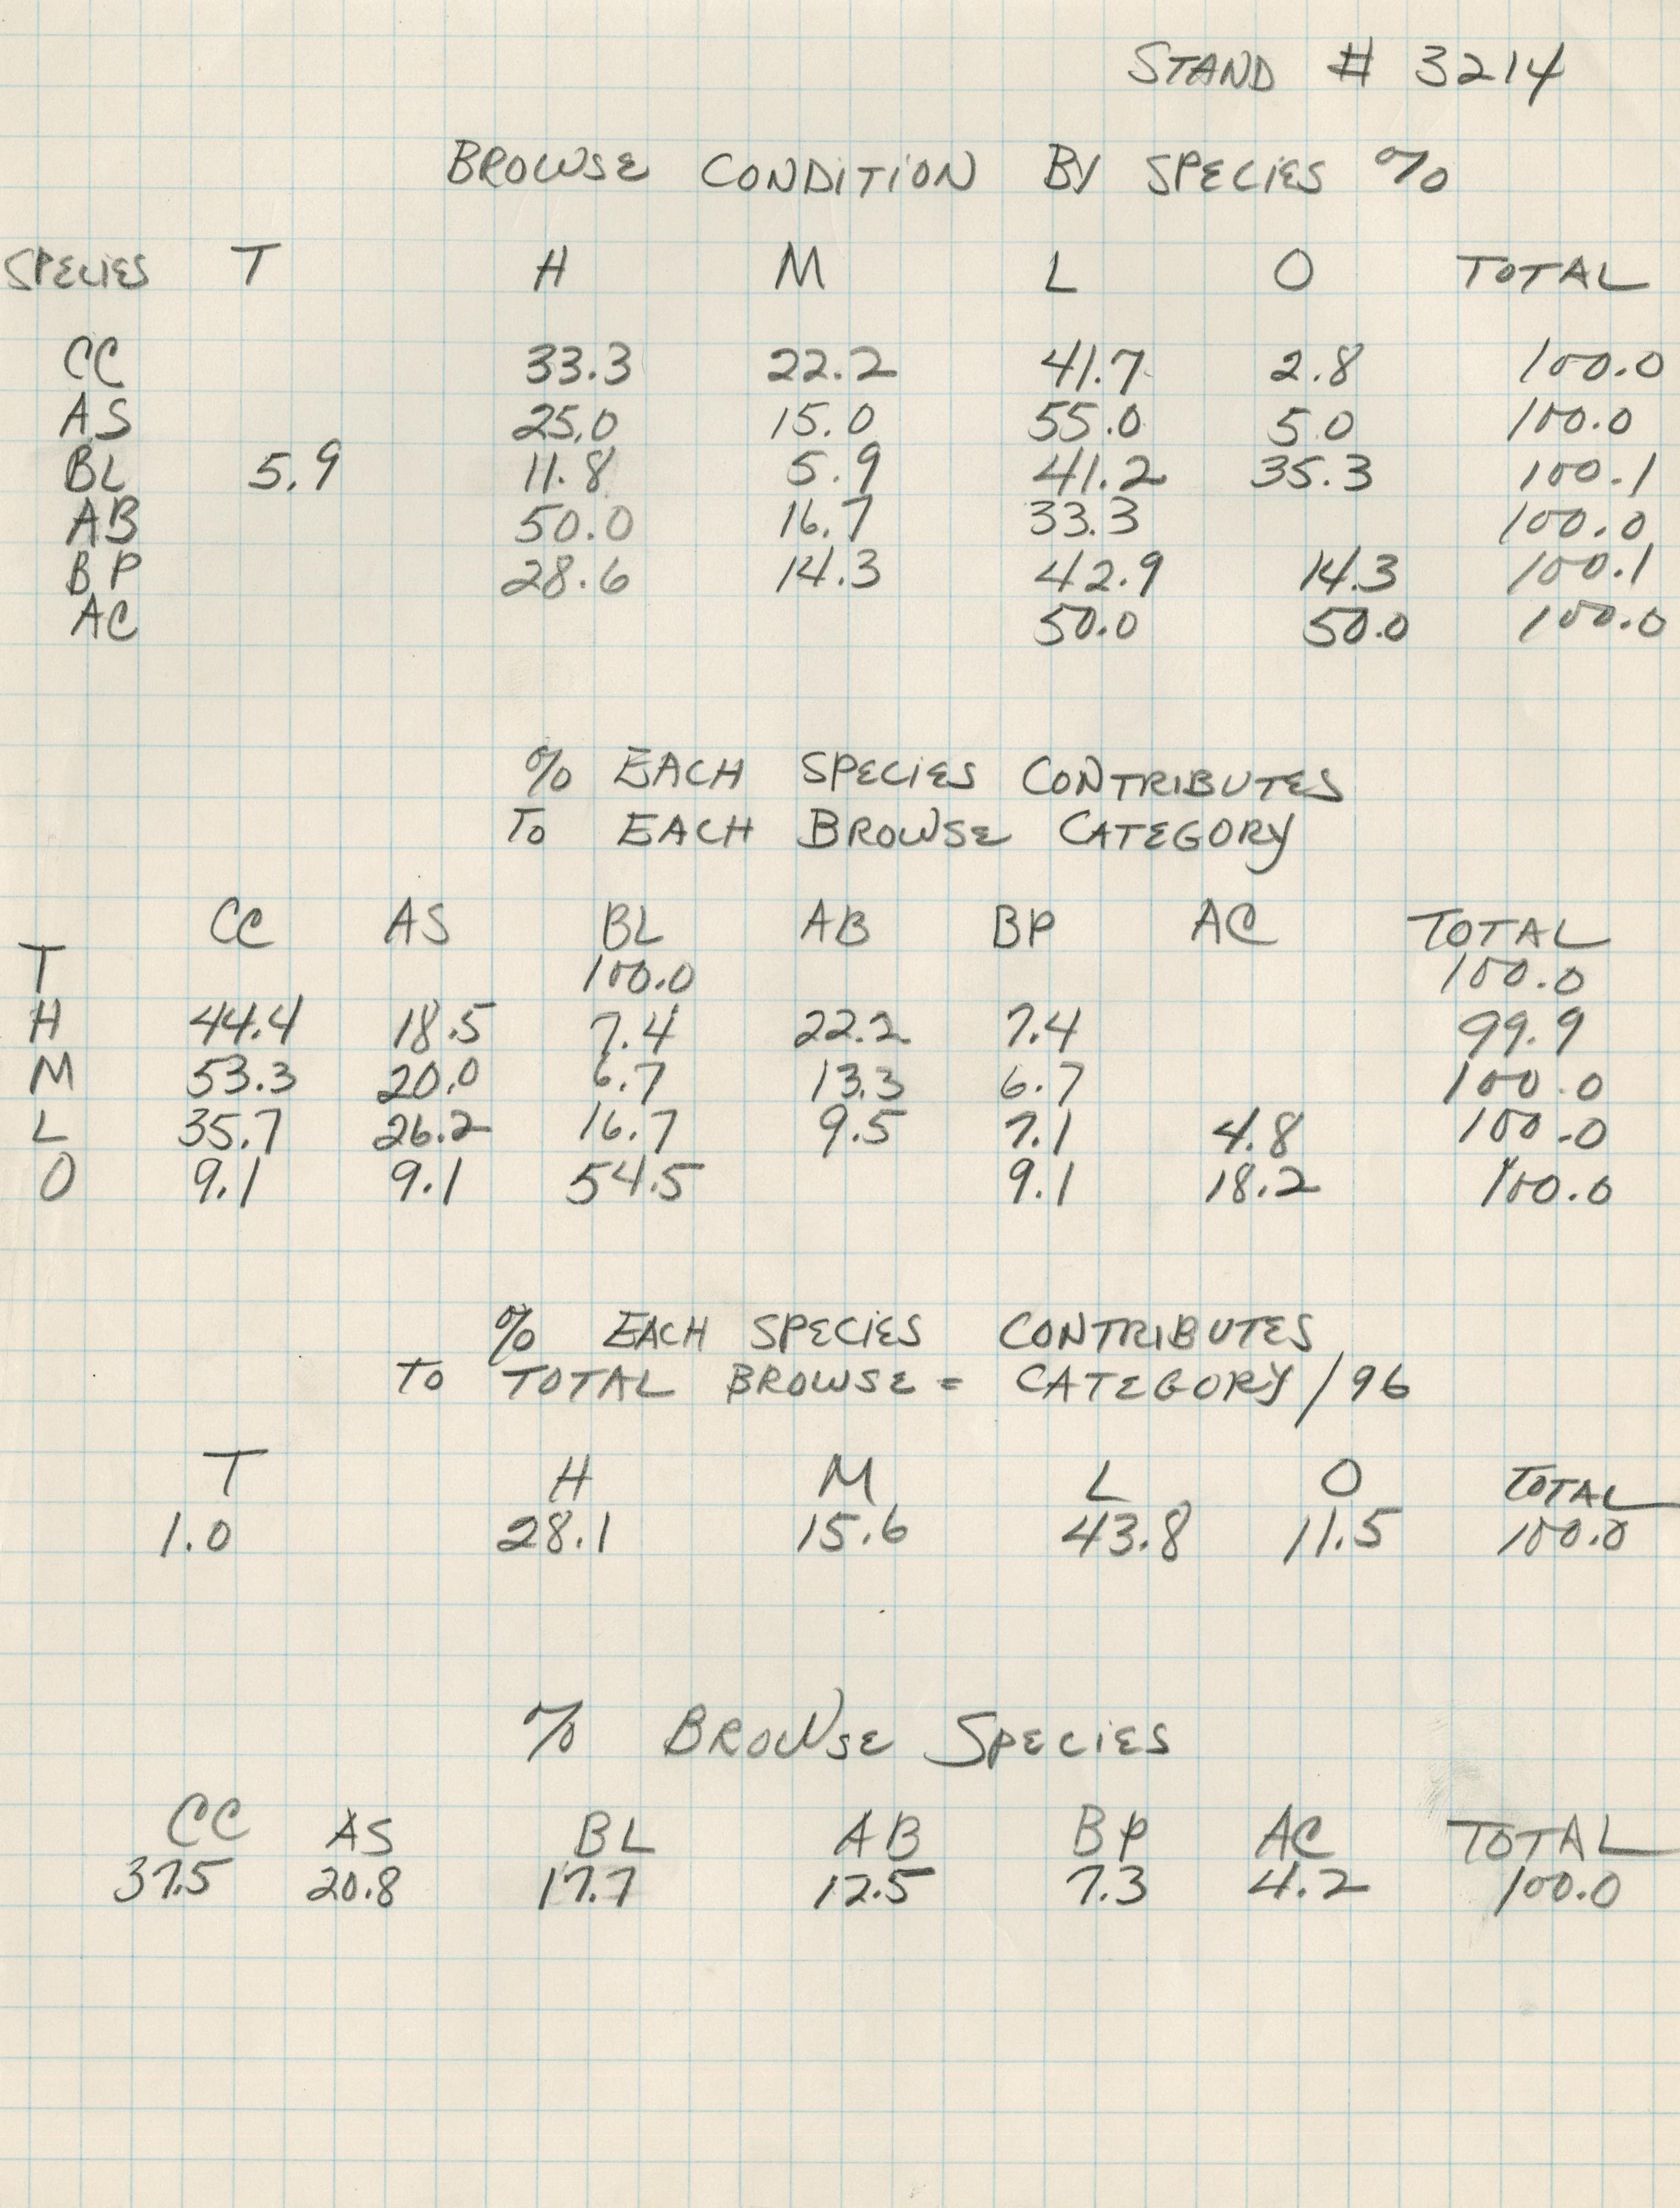 STAND # 3214
BROWSE CONDITION BY SPECIES %
SPECIES T H M L O TOTAL
CC 33.3 22.2 41.7 2.8 100.0
AS 25.0 15.0 55.0 5.0 100.0
BL 5.9 11.8 5.9 41.2 35.3 100.1
AB 50.0 16.7 33.3 100.0
BP 28.6 14.3 42.9 14.3 100.1
AC 50.0 50.0 100.0
% EACH SPECIES CONTRIBUTES
TO EACH BROWSE CATEGORY
CC AS BL AB BP AC TOTAL
T 100.0 100.0
H 44.4 18.5 7.4 22.2 7.4 99.9
M 53.3 20.0 6.7 13.3 6.7 100.0
L 35.7 26.2 16.7 9.5 7.1 4.8 100.0
O 9.1 9.1 54.5 9.1 18.2 100.0
% EACH SPECIES CONTRIBUTES
TO TOTAL BROWSE = CATEGORY/96
T H M L O TOTAL
1.0 28.1 15.6 43.8 11.5 100.0
% BROWSE SPECIES
CC AS BL AB BP AC TOTAL
37.5 20.8 17.7 12.5 7.3 4.2 100.0